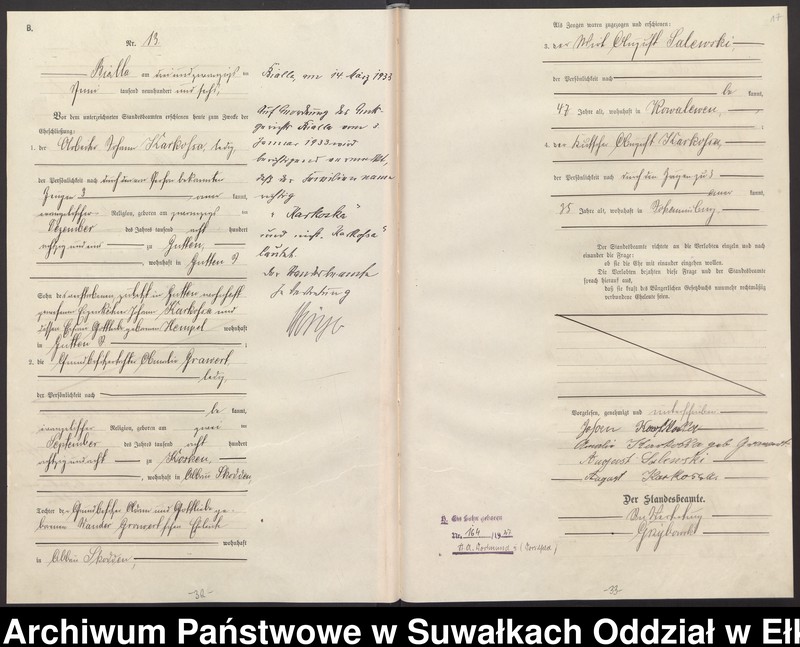 B.
Nr. 13.
Bialla am drei und zwanzigsten
Juni tausend neunhundert und sechs,
Vor dem unterzeichneten Standesbeamten erschienen heute zum Zwecke der
Eheschließung:
1. der Arbeiter Johann Karkossa, ledig,
der Persönlichkeit nach durch den
Zeugen 3 kannt,
evangelischer Religion, geboren am zwanzigsten
Dezember des Jahres tausend acht hundert
achtzig und zu Gutten,
, wohnhaft in Gutten
Sohn des verstorbenen, zuletzt in Gutten wohnhaft
gewesenen Eigenkätners Johann Karkossa und
dessen Ehefrau Gottliebe geborenen Hempel wohnhaft
in Gutten ;
2. die Grundbesitzertochter Amalie Grawert,
ledig,
der Persönlichkeit nach
be kannt,
evangelischer Religion, geboren am zwei
September des Jahres tausend acht hundert
achtzig und acht zu Kosken,
, wohnhaft in Abbau Skodden
Tochter der Grundbesitzer Adam und Gottliebe ge-
borenen Grawert'schen Eheleute
wohnhaft
in Abbau Skodden,
-32-
Bialla, am 14. März 1933
Auf Anordnung des Amts-
gerichts Bialla vom
Januar 1933 wird
berichtigend vermerkt,
daß der Familienname
richtig
"Karkoska"
und nicht "Karkossa"
lautet.
Der Standesbeamte
In Vertretung
17
Als Zeugen waren zugezogen und erschienen:
3. der Wirt August Salewski,
der Persönlichkeit nach
be kannt,
47 Jahre alt, wohnhaft in Kowalewen,
;
4. der Kutscher August Karkossa,
der Persönlichkeit nach durch den Zeugen zu 3
kannt,
35 Jahre alt, wohnhaft in Johannisburg.
Der Standesbeamte richtete an die Verlobten einzeln und nach
einander die Frage:
ob sie die Ehe mit einander eingehen wollen.
Die Verlobten bejahten diese Frage und der Standesbeamte
sprach hierauf aus,
daß sie kraft des Bürgerlichen Gesetzbuchs nunmehr rechtmäßig
verbundene Eheleute seien.
Vorgelesen, genehmigt und unterschrieben
Johann
Amalie Karkoska geb Grawert
August Salewski
August Karkossa
Der Standesbeamte.
In Vertretung
Ein Sohn geboren
Nr. 164 /19
-33-
Archiwum Państwowe w Suwałkach Oddział w Ełk